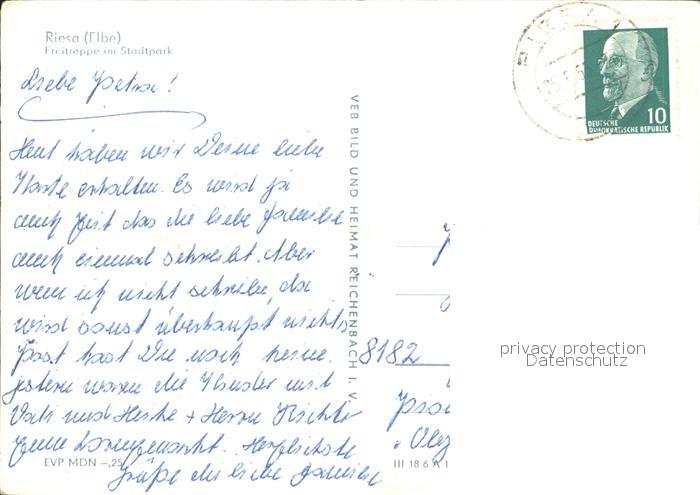 Riesa (Elbe)
Freitreppe im Stadtpark
Liebe Petra!
Heut haben wir Deine liebe
Karte erhalten. Es wird ja
auch Zeit das die liebe Familie
auch einmal schreibt. Aber
wenn ich nicht schreibe, da
wird sonst überhaupt nichts
Post hast Du noch keine.
gestern waren die Kinder mit
Vati und Heike + Herrn Richter
zum
Herzlichste
Grüße die liebe Familie
EVP MDN -,25
VEB BILD UND HEIMAT REICHENBACH I. V.
DEUTSCHE
DEMOKRATISCHE REPUBLIK
10
8182
III 18 6 A 1
privacy protection
Datenschutz